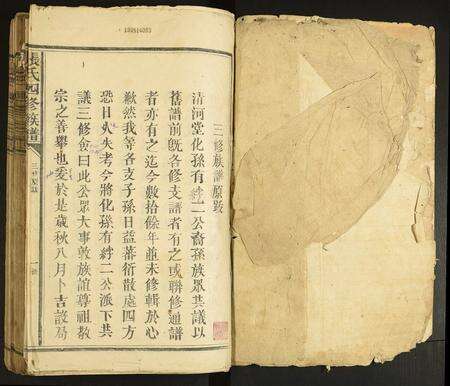 三修族譜原跋
清河堂化孫有綷二公裔孫族眾共議以
舊譜前既各修支譜者有之或聯修通譜
者亦有之迄今數拾餘年並未修輯於心
歉然我等各支子孫日益蕃衍散處四方
恐日久失考今將化孫有綷二公派下共
議三修僉曰此公眾大事敦族誼尊祖敬
宗之善舉也爰於是歲秋八月卜吉設局
張氏四修族譜